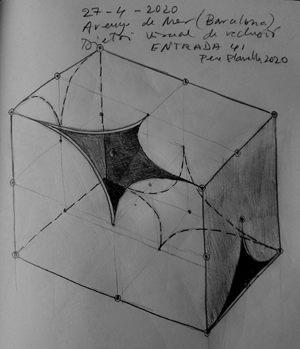 27-4-2020
Arenys de Mar (Barcelona),
visual de
ENTRADA 41
Pere Planells 2020